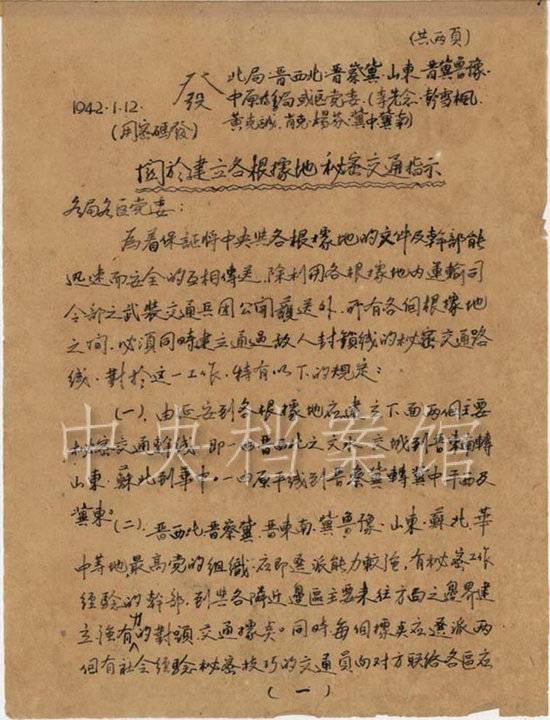 (共两頁)
1942.1.12. 发 北局·晋西北·晋察冀·山東·晋冀魯豫·
(用密碼發) 中原各局或区党委·(李先念·彭雪楓·
黄克誠·肖克·楊芬·冀中冀南)
関於建立各根據地秘密交通指示
各局各区党委:
為着保証將中央與各根據地的文件及幹部能
迅速而安全的互相傳送,除利用各根據地内運輸司
令部之武裝交通兵团公開護送外,所有各個根據地
之间,必須同時建立通過敌人封鎖线的秘密交通路
綫.對於这一工作,特有以下的規定:
(一)、由延安到各根據地应建立下面两個主要
秘密交通幹綫,即一由晋西北之文水交城到晋東南轉
山東·蘇北到華中。一由原平线到晋察冀轉冀中平西及
冀東。
(二)、晋西北晋察冀·晋東南·冀魯豫·山東·蘇北·華
中等地最高党的組織,应即選派能力較强,有秘密工作
經驗的幹部,到與各隣近邊區主要来往方面之邊界建
立强有力的對頭交通據点。同時每個據点应選派两
個有社会經驗秘密技巧的交通員向對方联络各區应
(一)
中央档案馆